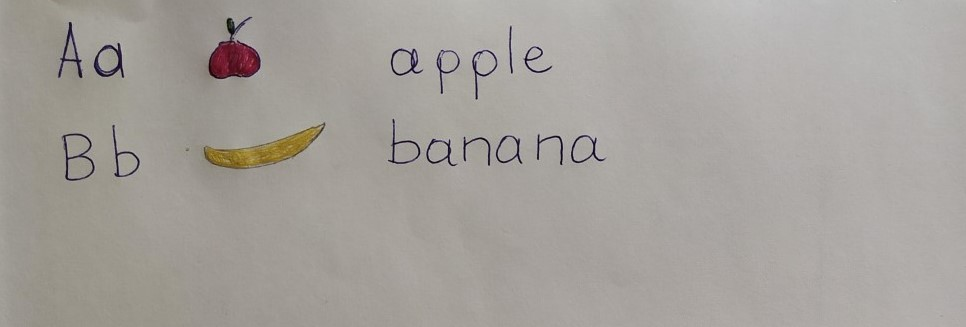 Aa apple
Bb banana